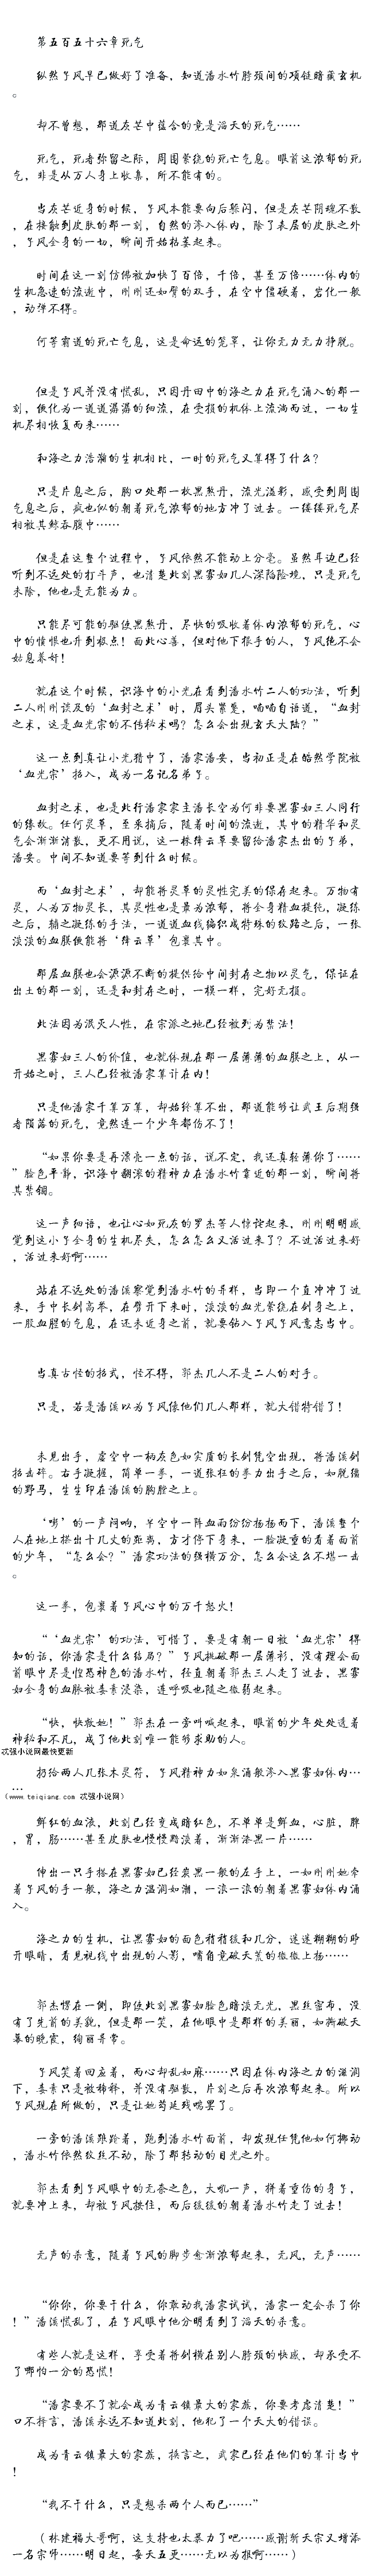 第五百五十六章死气
纵然予风早已做好了准备，知道潘水竹脖颈间的项链暗藏玄机
。
却不曾想，那道灰芒中蕴含的竟是滔天的死气……
死气，死者弥留之际，周围萦绕的死亡气息。眼前这浓郁的死
气，非是从万人身上收集，所不能有的。
当灰芒近身的时候，予风本能要向后躲闪，但是灰芒阴魂不散
，在接触到皮肤的那一刻，自然的渗入体内，除了表层的皮肤之外
，予风全身的一切，瞬间开始枯萎起来。
时间在这一刻仿佛被加快了百倍，千倍，甚至万倍……体内的
生机急速的流逝中，刚刚还如臂的双手，在空中僵硬着，岩化一般
，动弹不得。
何等霸道的死亡气息，这是命运的笼罩，让你无力无力挣脱。
但是予风并没有慌乱，只因丹田中的海之力在死气涌入的那一
刻，便化为一道道潺潺的细流，在受损的机体上流淌而过，一切生
机尽相恢复而来……
和海之力浩瀚的生机相比，一时的死气又算得了什么？
只是片息之后，胸口处那一枚黑煞丹，流光溢彩，感受到周围
气息之后，疯也似的朝着死气浓郁的地方冲了过去。一缕缕死气尽
相被其鲸吞腹中……
但是在这整个过程中，予风依然不能动上分毫。虽然耳边已经
听到不远处的打斗声，也清楚此刻黑雾如几人深陷险境，只是死气
未除，他也是无能为力。
只能尽可能的驱使黑煞丹，尽快的吸收着体内浓郁的死气，心
中的愤恨也升到极点！面此心善，但对他下狠手的人，予风绝不会
姑息养奸！
就在这个时候，识海中的小光在看到潘水竹二人的功法，听到
二人刚刚谈及的‘血封之术’时，眉头紧蹙，喃喃自语道，“血封
之术，这是血光宗的不传秘术吗？怎么会出现玄天大陆？”
这一点到真让小光猜中了，潘家潘安，当初正是在皓然学院被
‘血光宗’招入，成为一名记名弟子。
血封之术，也是此行潘家家主潘长空为何非要黑雾如三人同行
的缘故。任何灵草，至采摘后，随着时间的流逝，其中的精华和灵
气会渐渐消散，更不用说，这一株绛云草要留给潘家杰出的子弟，
潘安。中间不知道要等到什么时候。
而‘血封之术’，却能将灵草的灵性完美的保存起来。万物有
灵，人为万物灵长，其灵性也是最为浓郁，将全身精血提纯，凝练
之后，辅之凝练的手法，一道道血线编织成特殊的纹路之后，一张
淡淡的血膜便能将‘绛云草’包裹其中。
那层血膜也会源源不断的提供给中间封存之物以灵气，保证在
出土的那一刻，还是和封存之时，一模一样，完好无损。
此法因为泯灭人性，在宗派之地已经被列为禁法！
黑雾如三人的价值，也就体现在那一层薄薄的血膜之上，从一
开始之时，三人已经被潘家算计在内！
只是他潘家千算万算，却始终算不出，那道能够让武王后期强
者陨落的死气，竟然连一个少年都伤不了！
“如果你要是再漂亮一点的话，说不定，我还真轻薄你了……
”脸色平静，识海中翻滚的精神力在潘水竹靠近的那一刻，瞬间将
其禁锢。
这一声细语，也让心如死灰的罗杰等人惊诧起来，刚刚明明感
觉到这小子全身的生机尽失，怎么怎么又活过来了？不过活过来好
，活过来好啊……
站在不远处的潘溪察觉到潘水竹的异样，当即一个直冲冲了过
来，手中长剑高举，在臂开下来时，淡淡的血光萦绕在剑身之上，
一股血腥的气息，在还未近身之前，就要钻入予风予风意志当中。
当真古怪的招式，怪不得，郭杰几人不是二人的对手。
只是，若是潘溪以为予风像他们几人那样，就大错特错了！
未见出手，虚空中一柄灰色如实质的长剑凭空出现，将潘溪剑
招击碎。右手凝握，简单一拳，一道张狂的拳力出手之后，如脱缰
的野马，生生印在潘溪的胸膛之上。
‘嘭’的一声闷响，半空中一阵血雨纷纷扬扬而下，潘溪整个
人在地上搓出十几丈的距离，方才停下身来，一脸凝重的看着面前
的少年，“怎么会？”潘家功法的强横万分，怎么会这么不堪一击
。
这一拳，包裹着予风心中的万千怒火！
“‘血光宗’的功法，可惜了，要是有朝一日被‘血光宗’得
知的话，你潘家是什么结局？”予风挑破那一层薄衫，没有理会面
前眼中尽是惶恐神色的潘水竹，径直朝着郭杰三人走了过去，黑雾
如全身的血脉被毒素浸染，连呼吸也随之微弱起来。
“快，快救她！”郭杰在一旁叫喊起来，眼前的少年处处透着
神秘和不凡，成了他此刻唯一能够求助的人。
忒强小说网最快更新
扔给两人几张木灵符，予风精神力如泉涌般渗入黑雾如体内…
…
（www.teiqiang.com 忒强小说网）
鲜红的血液，此刻已经变成暗红色，不单单是鲜血，心脏，脾
，胃，肠……甚至皮肤也慢慢黯淡着，渐渐漆黑一片……
伸出一只手搭在黑雾如已经炭黑一般的左手上，一如刚刚她牵
着予风的手一般，海之力温润如潮，一浪一浪的朝着黑雾如体内涌
入。
海之力的生机，让黑雾如的面色稍稍缓和几分，迷迷糊糊的睁
开眼睛，看见视线中出现的人影，嘴角竟破天荒的微微上扬……
郭杰愣在一侧，即使此刻黑雾如脸色暗淡无光，黑丝密布，没
有了先前的美貌，但是那一笑，在他眼中是那样的美丽，如撕破天
幕的晚霞，绚丽异常。
予风笑着回应着，而心却乱如麻……只因在体内海之力的滋润
下，毒素只是被稀释，并没有驱散，片刻之后再次浓郁起来。所以
予风现在所做的，只是让她苟延残喘罢了。
一旁的潘溪踉跄着，跑到潘水竹面前，却发现任凭他如何挪动
，潘水竹依然纹丝不动，除了那转动的目光之外。
郭杰看到予风眼中的无奈之色，大吼一声，拼着重伤的身子，
就要冲上来，却被予风拦住，而后缓缓的朝着潘水竹走了过去！
无声的杀意，随着予风的脚步愈渐浓郁起来，无风，无声……
“你你，你要干什么，你敢动我潘家试试，潘家一定会杀了你
！”潘溪慌乱了，在予风眼中他分明看到了滔天的杀意。
有些人就是这样，享受着将剑横在别人脖颈的快感，却承受不
了哪怕一分的恐慌！
“潘家要不了就会成为青云镇最大的家族，你要考虑清楚！”
口不择言，潘溪永远不知道此刻，他犯了一个天大的错误。
成为青云镇最大的家族，换言之，武家已经在他们的算计当中
！
“我不干什么，只是想杀两个人而已……”
（林建福大哥啊，这支持也太暴力了吧……感谢斩天宗又增添
一名宗师……明日起，每天五更……无以为报啊……）